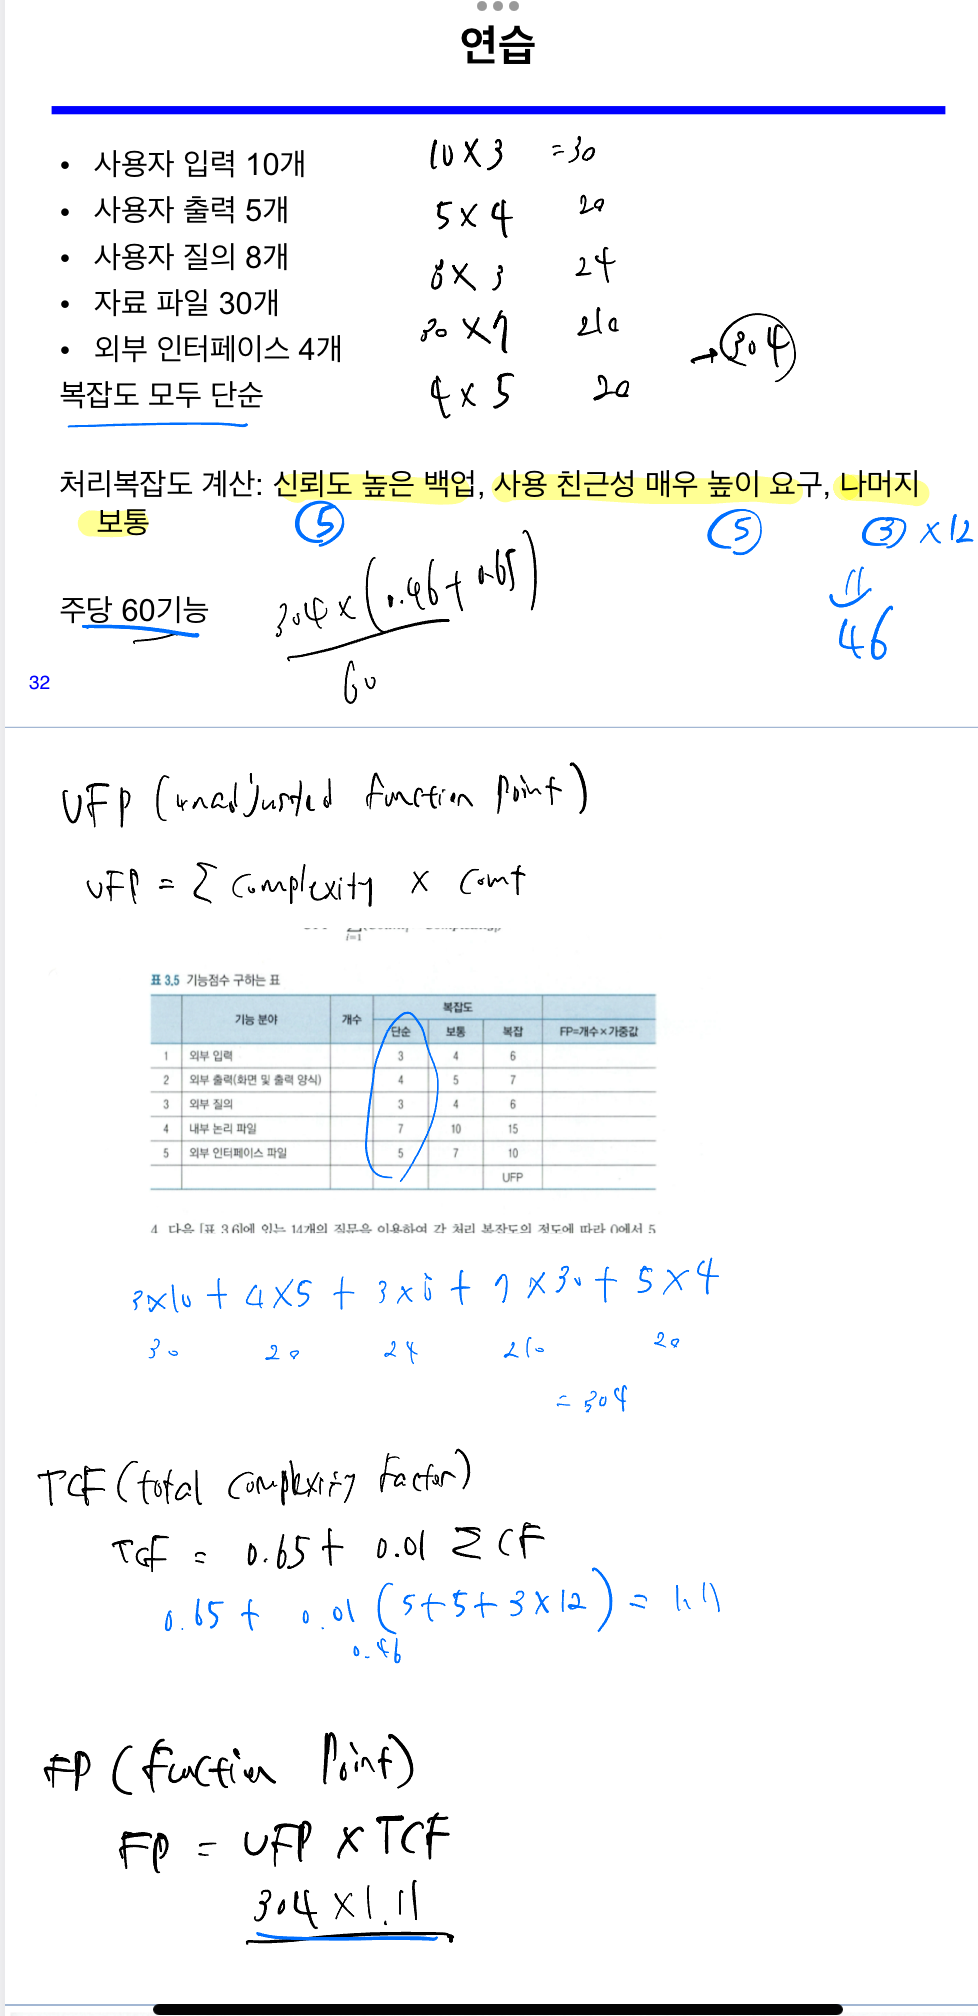 연습
• 사용자 입력 10개 10 X 3 = 30
• 사용자 출력 5개 5 X 4 20
• 사용자 질의 8개 8 X 3 24
• 자료 파일 30개 30 X 7 210
• 외부 인터페이스 4개 → 304
복잡도 모두 단순 4 x 5 20
처리복잡도 계산: 신뢰도 높은 백업, 사용 친근성 매우 높이 요구, 나머지
보통 5 5 3 x 12
주당 60기능 304 x (0.46 + 0.65) 46
60
32
UFP (unadjusted function point)
UFP = Σ complexity x count
i=1
표 3.5 기능점수 구하는 표
기능 분야 개수 복잡도
단순 보통 복잡 FP=개수×가중값
1 외부 입력 3 4 6
2 외부 출력(화면 및 출력 양식) 4 5 7
3 외부 질의 3 4 6
4 내부 논리 파일 7 10 15
5 외부 인터페이스 파일 5 7 10
UFP
4. 다음 [표 3.6]에 있는 14개의 질문을 이용하여 각 처리 복잡도의 정도에 따라 0에서 5
3x10 + 4x5 + 3x8 + 7x30 + 5x4
30 20 24 210 20
= 304
TCF (total complexity factor)
TCF = 0.65 + 0.01 Σ CF
0.65 + 0.01 (5+5+3x12) = 1.11
0.46
FP (function Point)
FP = UFP x TCF
304 x 1.11